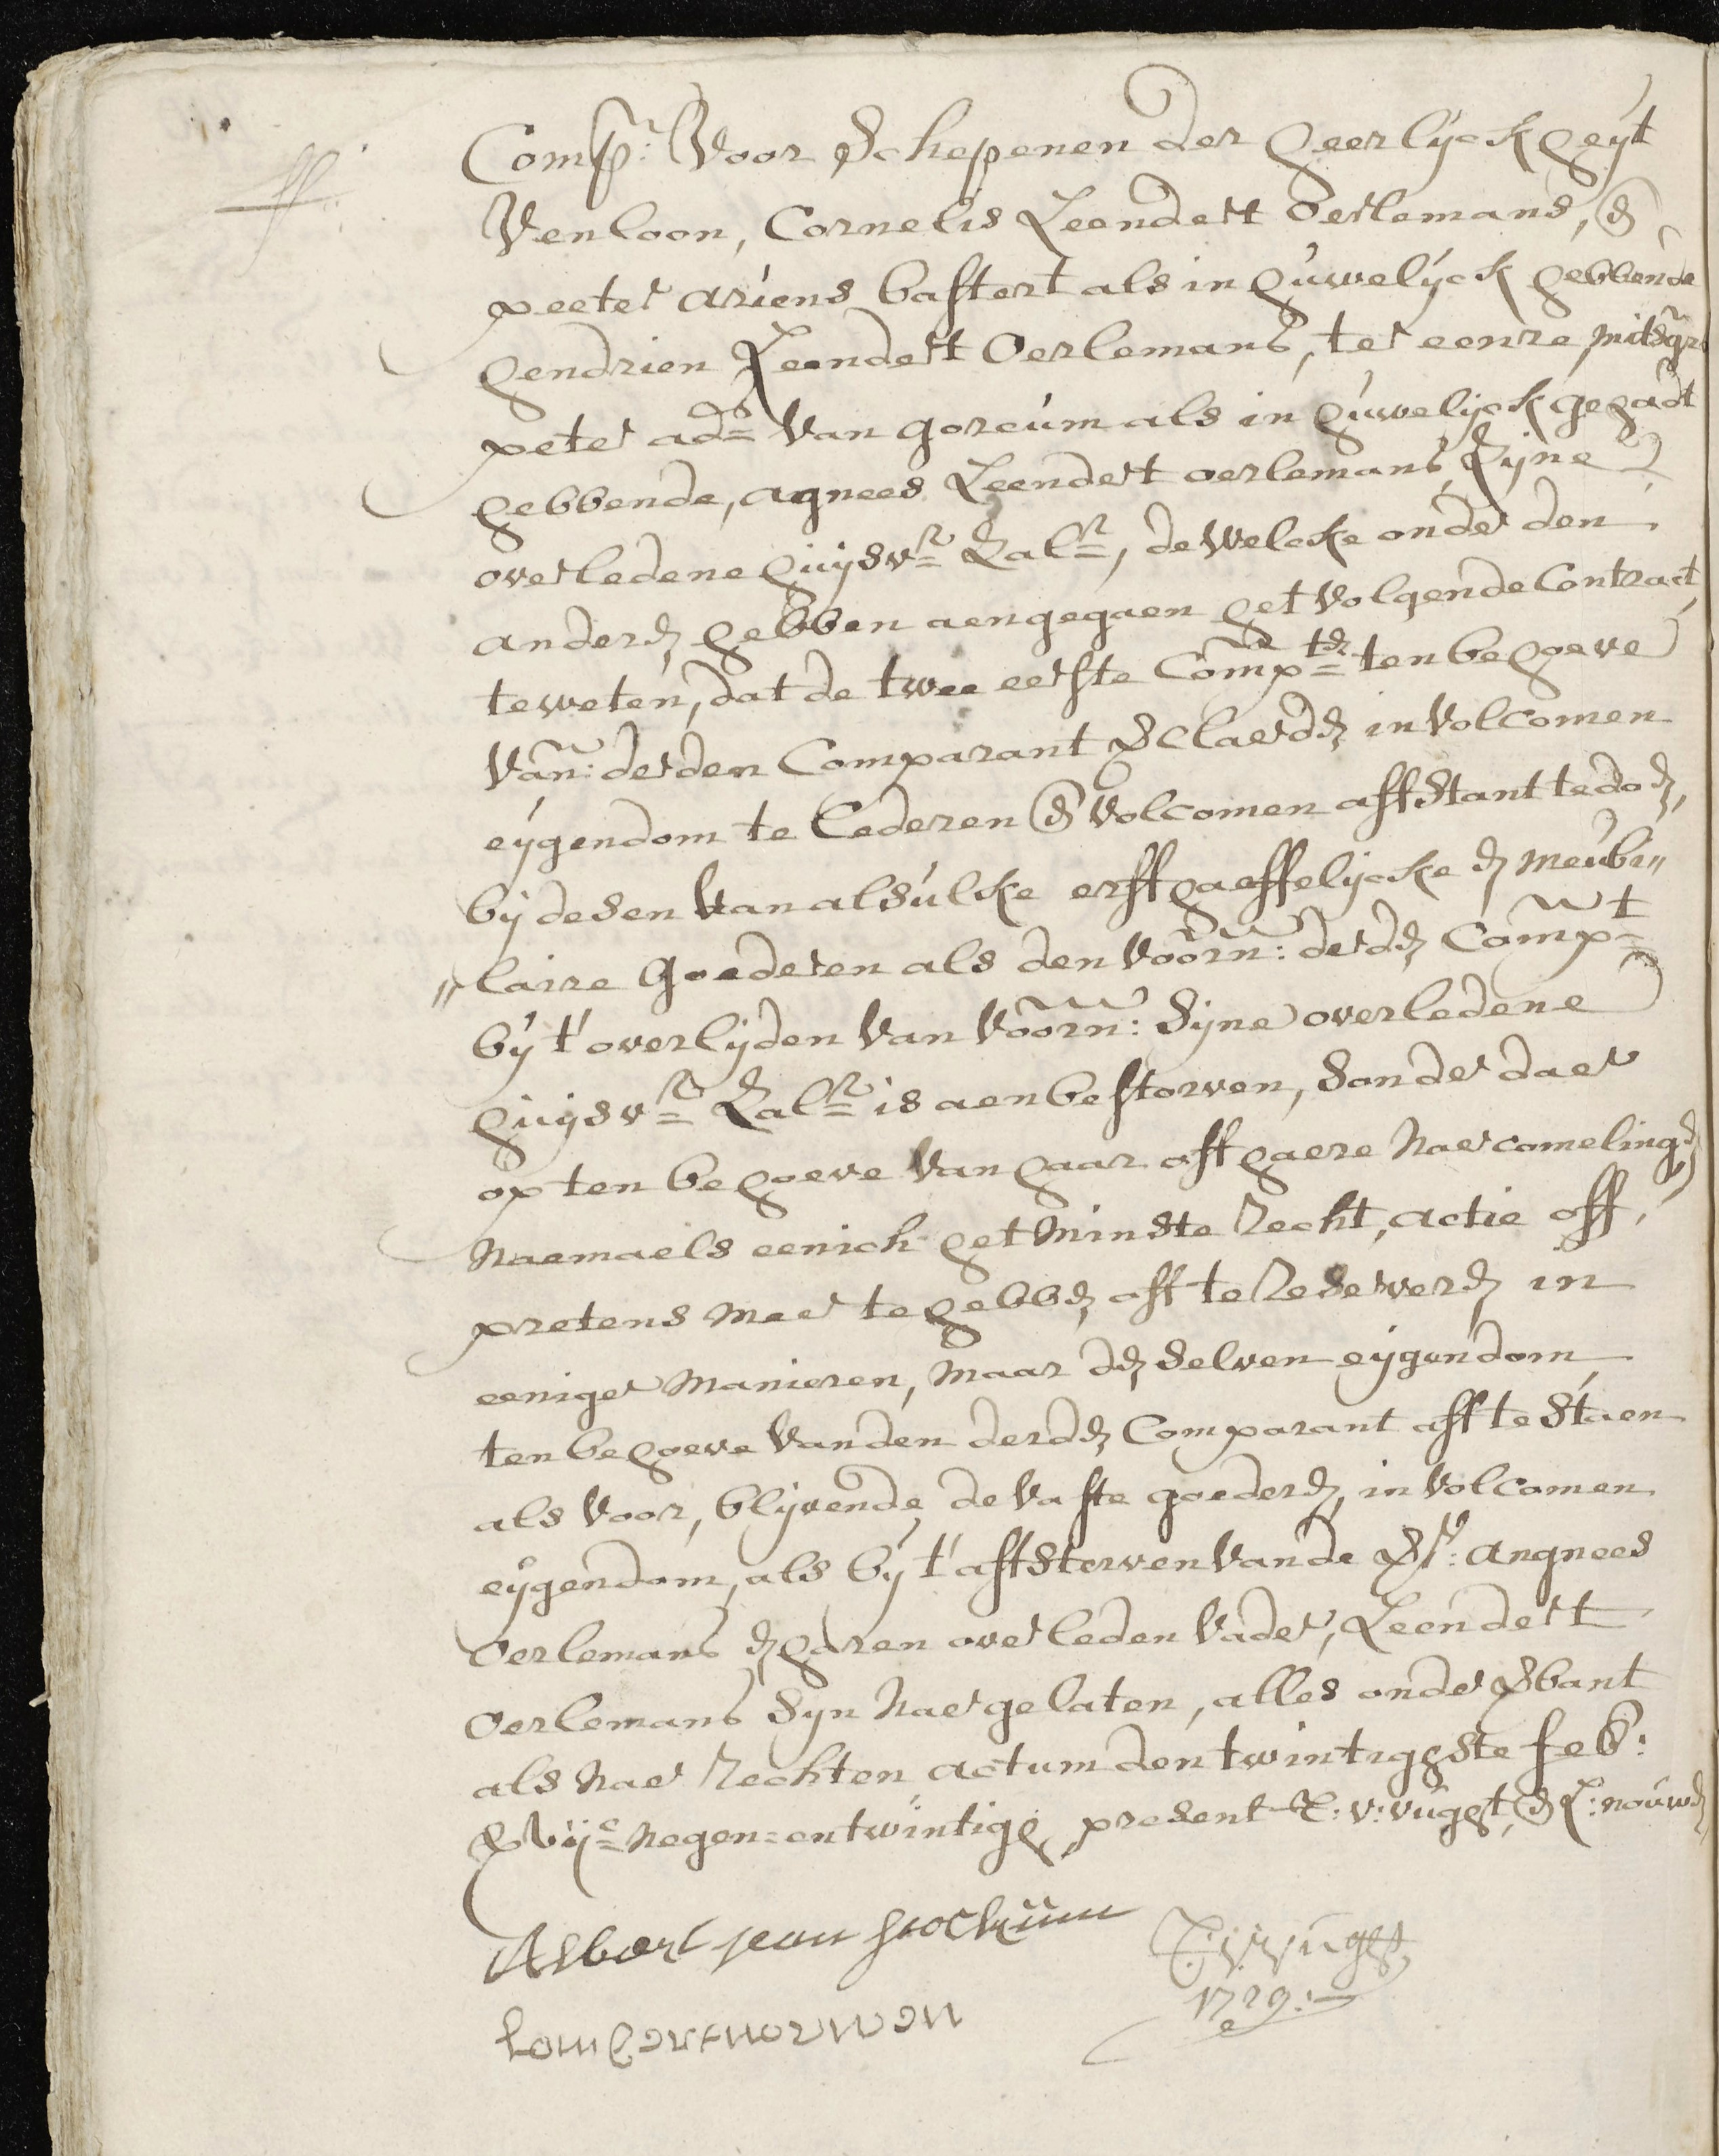 ff.
Comp: Voor Schepenen der heerlyckheyt
Venloon, Cornelis Leendert Oerlemans, en
peeter ariens bastert als in huwelyck hebbende
hendrien Leendert Oerlemans, ter eenre, mitsgrs
peter ads van gorcum als in huwelyck gehadt
hebbende, agnees Leendert oerlemans Zijne
overledene huijsvr Zalr, dewelcke onder den
anderen hebben aengegaen het volgende Contract,
te weten, dat de twee eerste Compten ten behoeve
Van: derden Comparant verclaerden in volcomen
eygendom te Cederen en volcomen affstant te doen,
by desen van alsulcke erffhaeffelycke en meube„
„laire goederen als den voorn: derden Compt
by t' overlyden van voorn: Syne overledene
huijsvr Zalr is aenbestorven, Sonder daer
op ten behoeve van haar oft haere naercomelingen
Naemaels eenich het minste recht, actie off,
pretens meer te hebben off te reserveren in
eeniger Manieren, maar den selven eygendom
ten behoeve vanden derden Comparant aff te staen
als voor, blyvende de vaste goederen, in volcomen
eygendom, als by t' affsterven vande vs: angnees
Oerlemans en haren overleden vader, Leendert
Oerlemans Syn naergelaten, alles onder verbant
als naer rechten actum den twintighste feb:
XVIJc negen=entwintigh, present Z: v: vught, en L: nouwen
Albert Jean Stockum
Z: V: vught
1729: